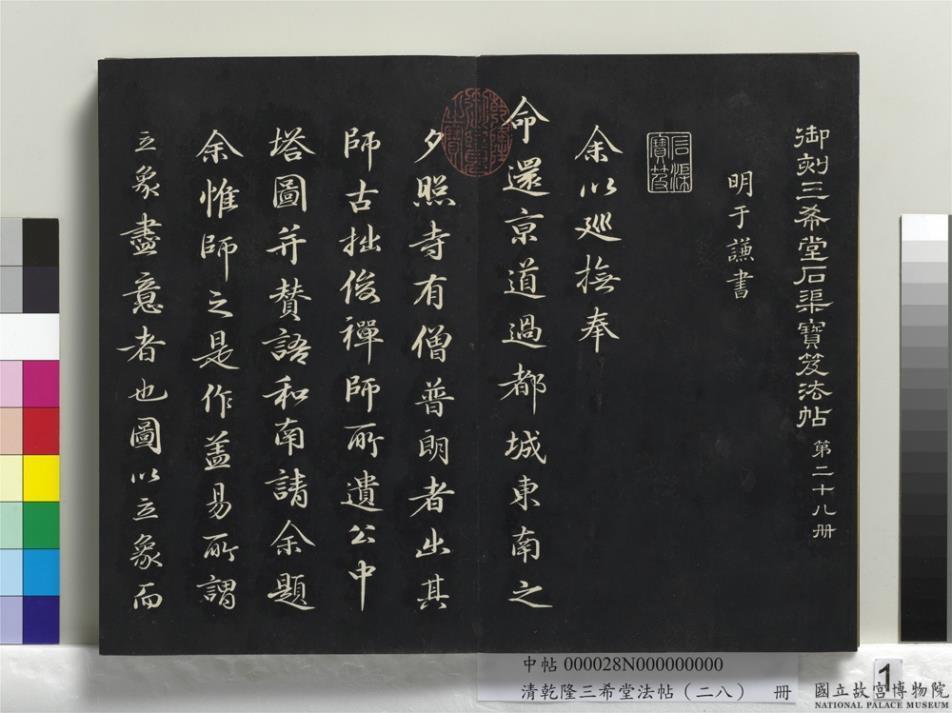 御刻三希堂石渠寶笈法帖 第二十八冊
明于謙書
石渠寶笈
余以廵撫奉
命還京道過都城東南之
夕照寺有僧普朗者出其
師古拙俊禪師所遺公中
塔圖并賛語和南請余題
余惟師之是作盖易所謂
立象盡意者也圖以立象而
中帖 000028N000000000
清乾隆三希堂法帖(二八) 冊
1
國立故宮博物院
NATIONAL PALACE MUSEUM